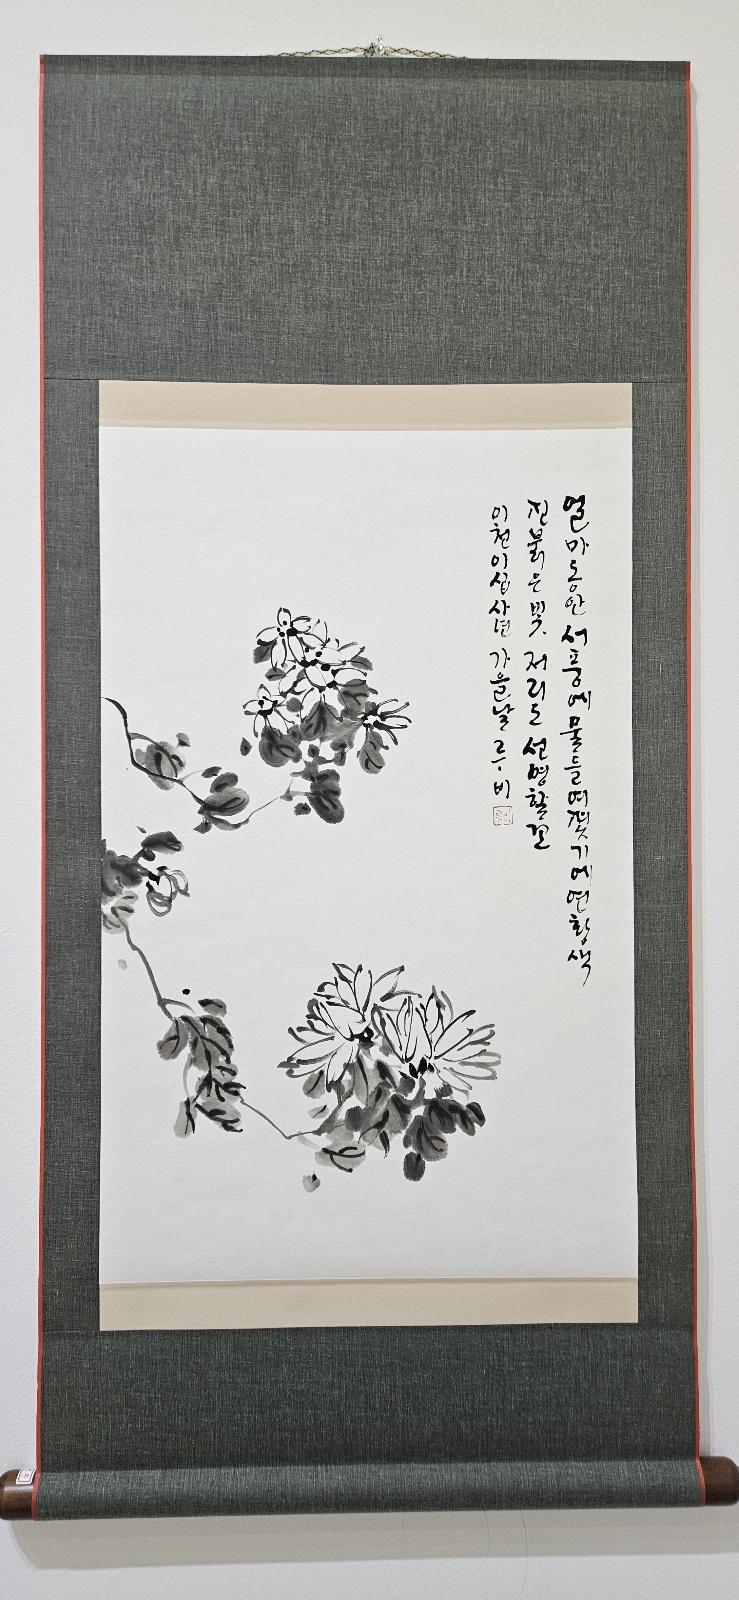 얼마동안 서풍에 물들여졌기에 연황색
진붉은 빛 저리도 선명할꼬
이천이십사년 가을날 루비